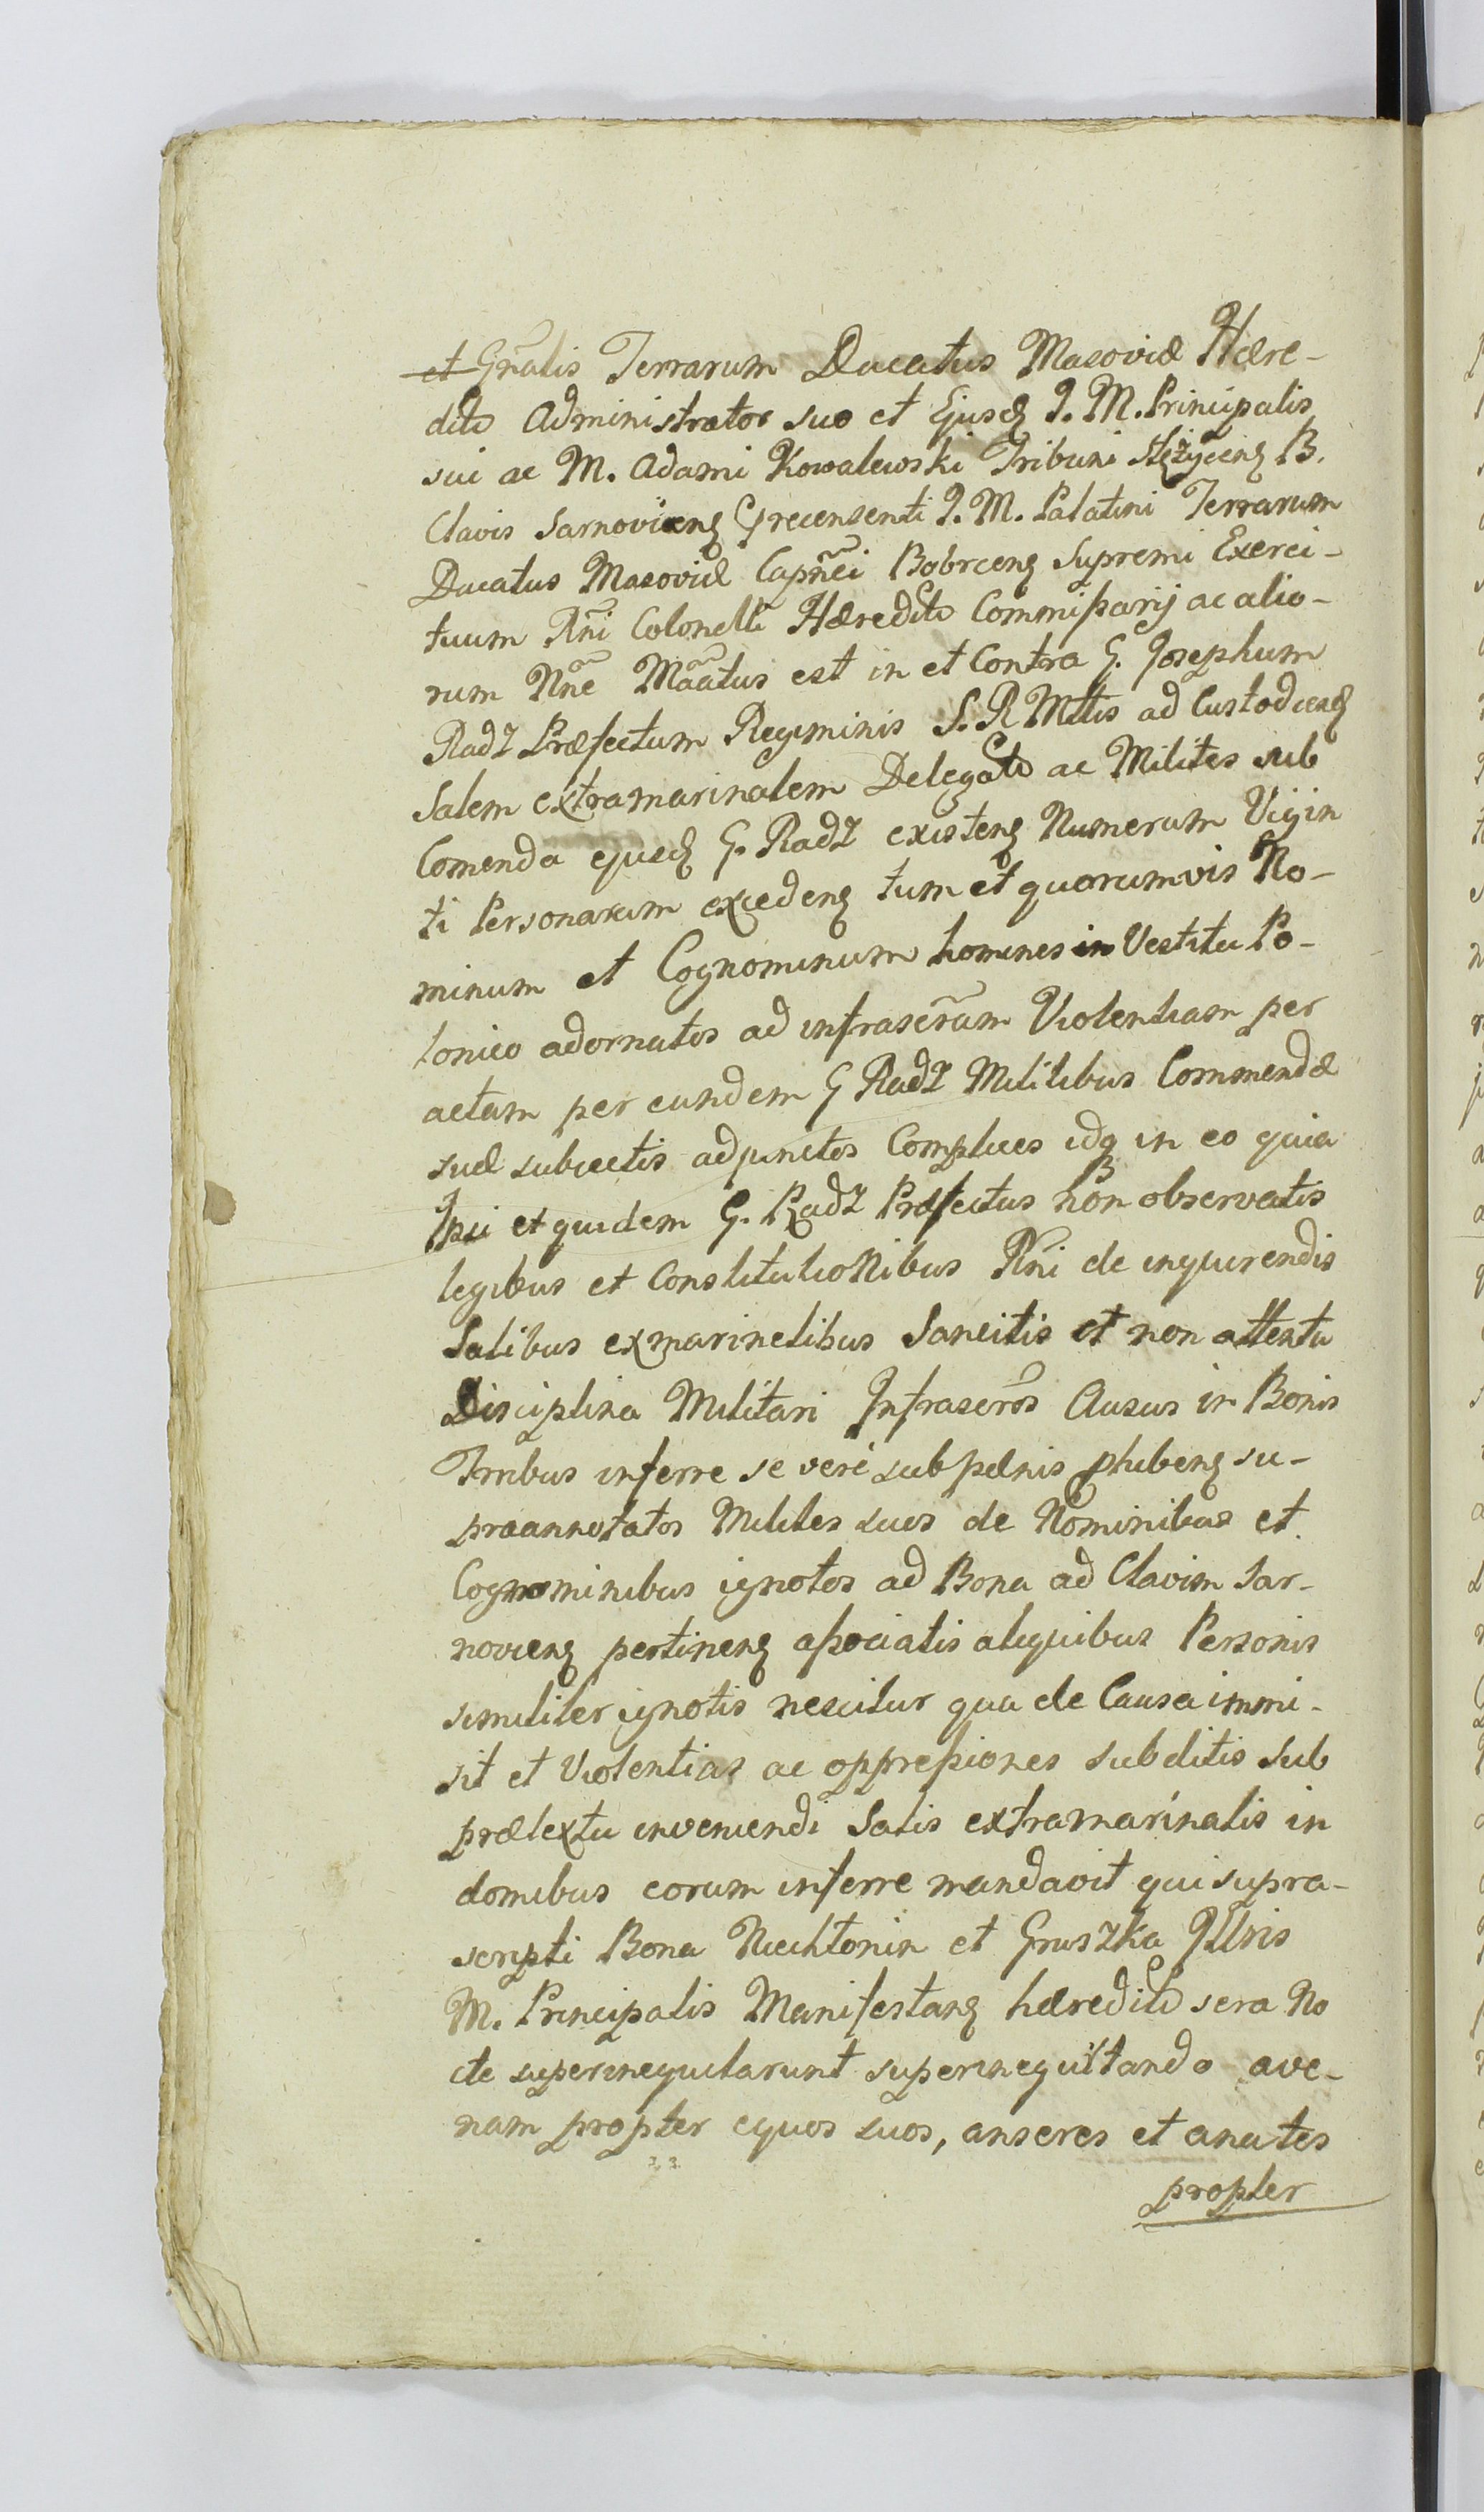 et Gñalis Terrarum Ducatus Masoviæ Hære-
ditō Administrator suo et Ejusdꝫ J. M. Principalis
sui ac M. Adami Kowalewski Tribuni Stężycenꝫ B.
Clavis Sarnovienꝫ precensenti J. M. Palatini Terrarum
Ducatus Masoviæ Capñei Bobrcenꝫ Supremi Exerci-
tuum Rñi Colonelli Hæreditō Commissarij ac alio-
rum Nñe Mãatus est in et Contra G. Josephum
Radz Præfectum Regiminis S. R Mttis ad Custodienꝫ
Salem extramarinalem Delegatō ac Milites sub
Comenda ejusdꝫ G. Radz existenꝫ Numerum Vigin
ti Personarum excedenꝫ tum et quorumvis No-
minum et Cognominum homines in Vestitu Po-
lonico adornatos ad infrascr̃am Violentiam per
actam per eundem G Radz Militibus Commendæ
suæ subiectis adjunctos Complices idq in eo quia
Ipsi et quidem G. Radz Præfectus non observatis
legibus et Constitutionibus Rñi de inquirendis
Salibus exmarinelibus Sancitis et non attenta
Disciplina Militari Infrascr̃os Ausus in Bonis
Trribus inferre severè sub pænis phibenꝫ su-
praannotatos Milites suos de Nominibus et
Cognominibus ignotos ad Bona ad Clavim Sar-
novienꝫ pertinenꝫ associatis aliquibus Personis
similiter ignotis nescitur qua de Causa immi-
sit et Violentias ac oppressiones subditis sub
prætextu inveniendi Salis extramarinalis in
domibus eorum inferre mandavit qui supra-
scripti Bona Niechtonin et Gruszka Jllris
M. Principalis Manifestanꝫ hæreditō sera No
cte superinequitarunt superinequitando ave-
nam propter equos suos, anseres et anates
propter